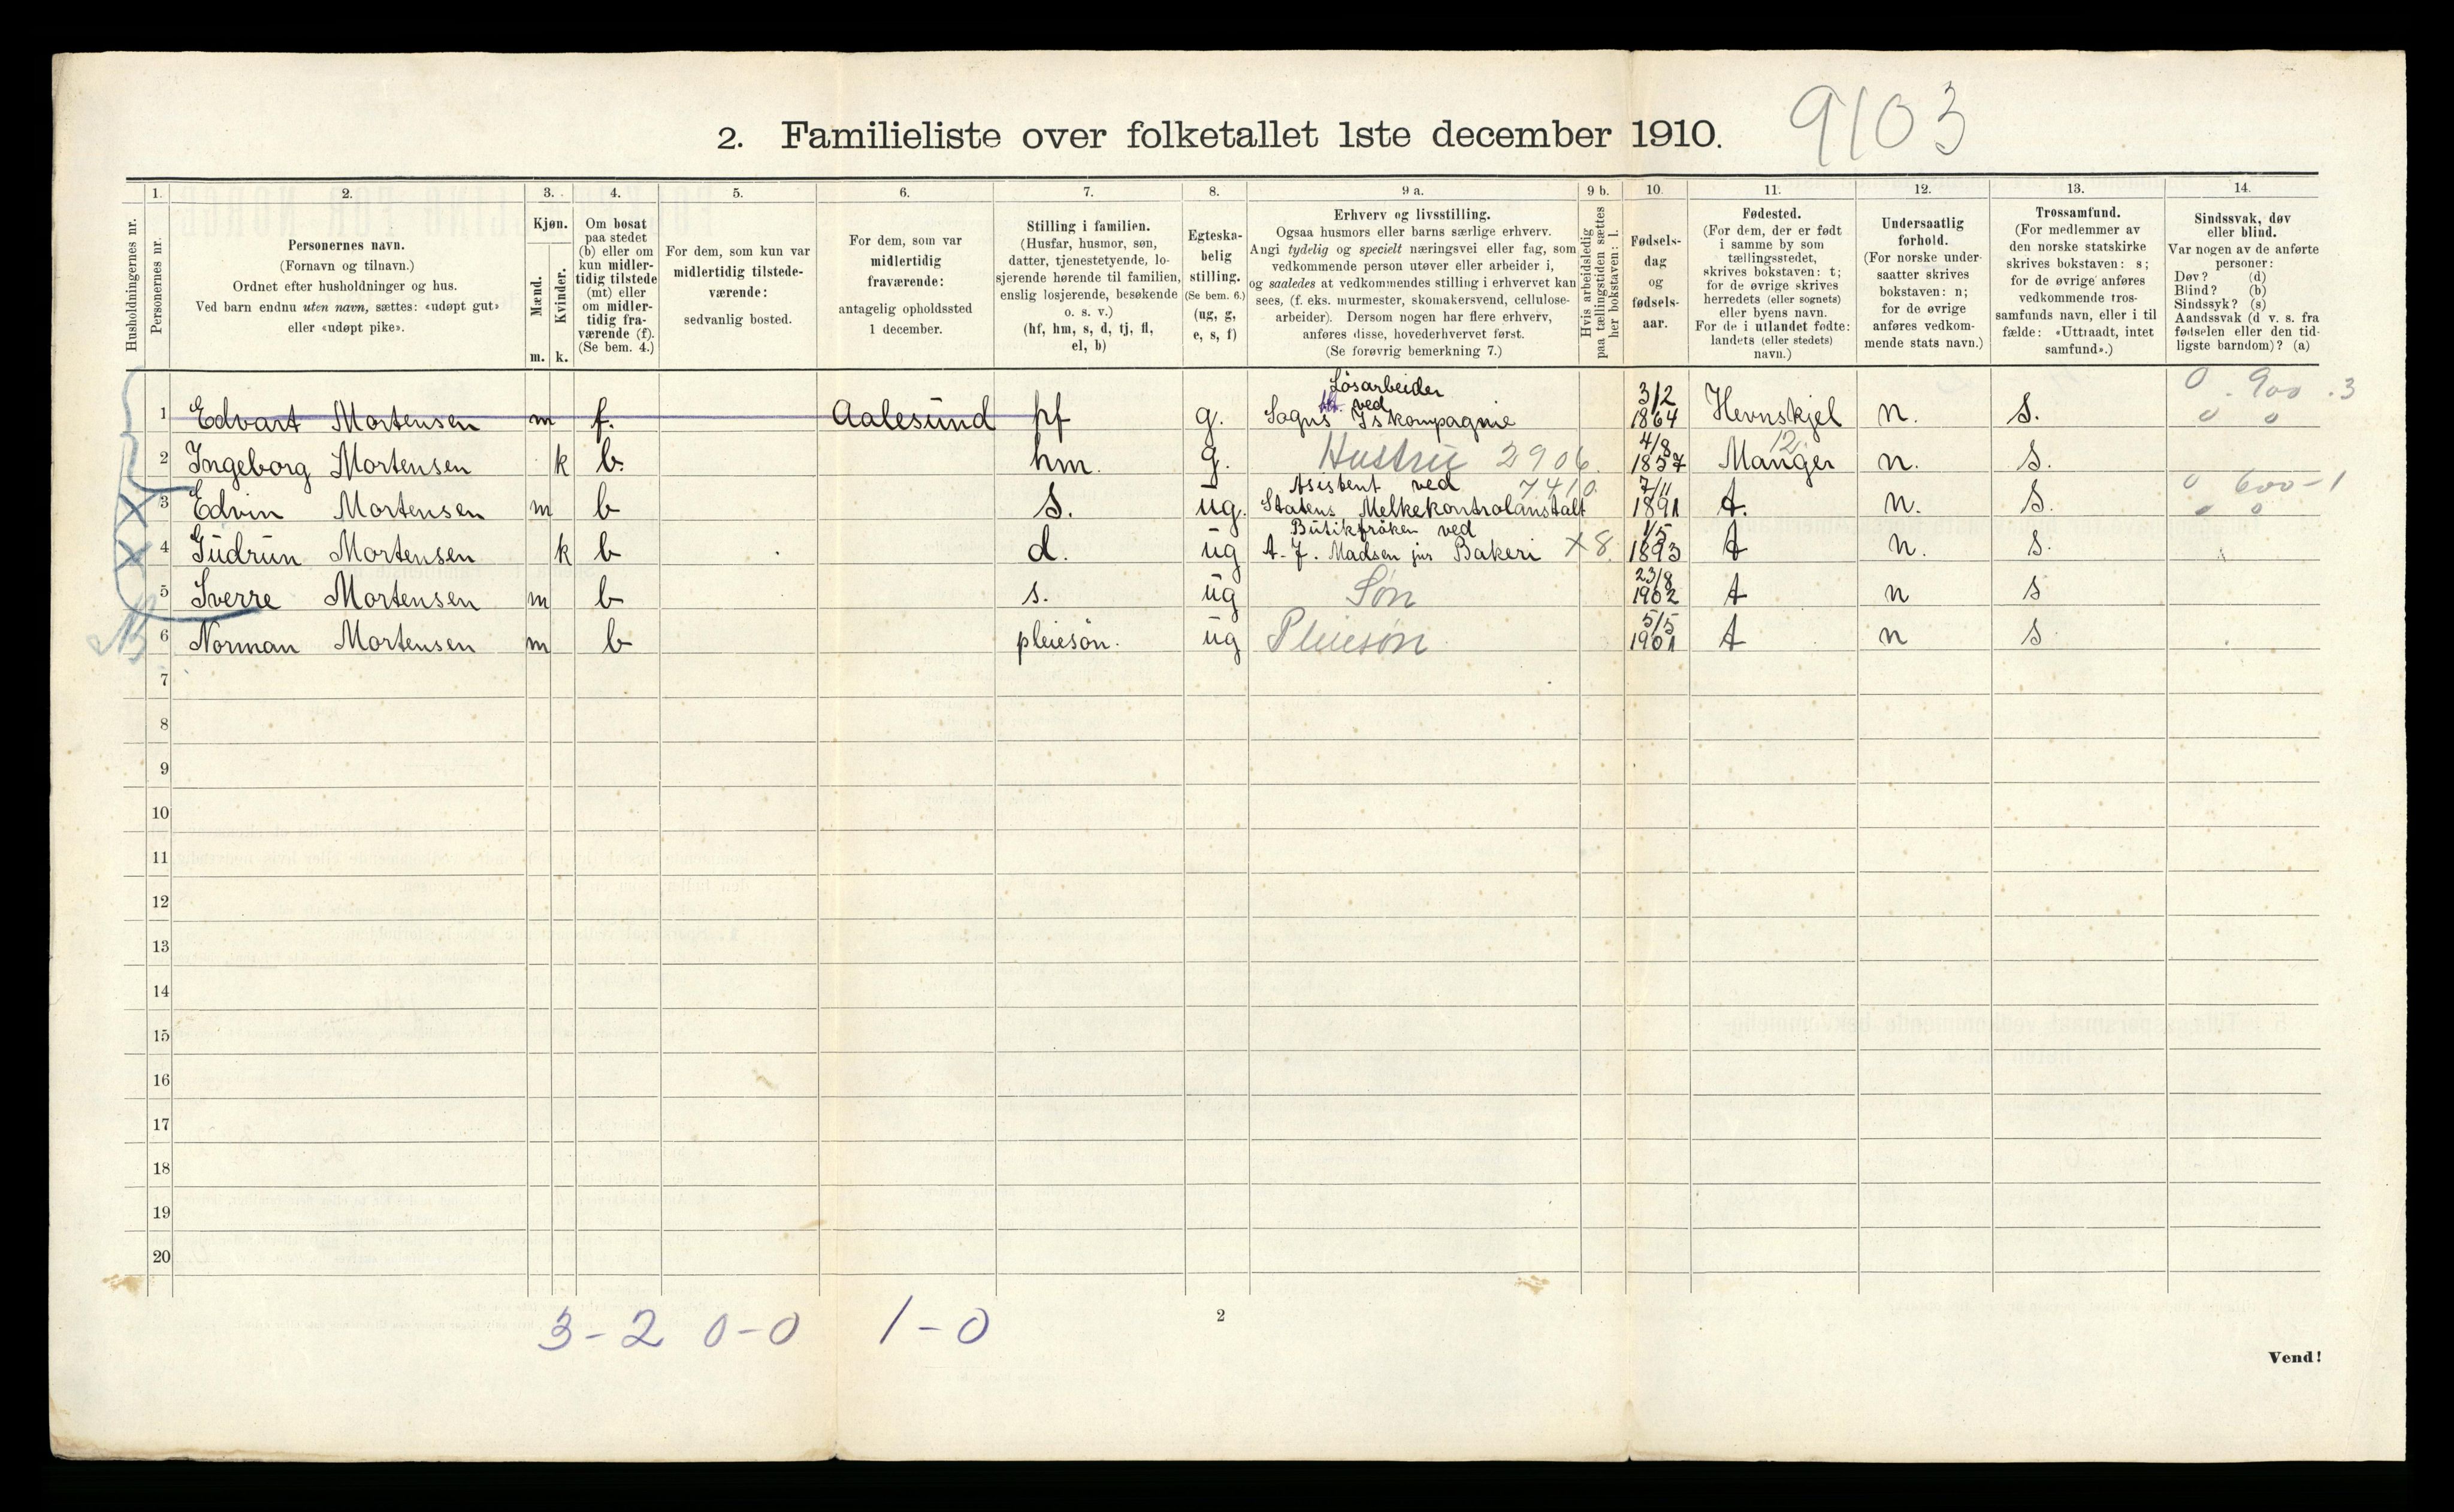 2. Familieliste over folketallet 1ste december 1910.
9103
Husholdningernes nr.
1.
Personernes nr.
2.
Personernes navn.
(Fornavn og tilnavn.)
Ordnet efter husholdninger og hus.
Ved barn endnu uten navn, sættes: «udøpt gut»
eller «udøpt pike».
3.
Kjøn.
Mænd.
Kvinder.
m. k.
4.
Om bosat
paa stedet
(b) eller om
kun midler-
tidig tilstede
(mt) eller
om midler-
tidig fra-
værende (f).
(Se bem. 4.)
5.
For dem, som kun var
midlertidig tilstede-
værende:
sedvanlig bosted.
6.
For dem, som var
midlertidig
fraværende:
antagelig opholdssted
1 december.
7.
Stilling i familien.
(Husfar, husmor, søn,
datter, tjenestetyende, lo-
sjerende hørende til familien,
enslig losjerende, besøkende
o. s. v.)
(hf, hm, s, d, tj, fl,
el, b)
8.
Egteska-
belig
stilling.
(Se bem. 6.)
(ug, g,
e, s, f)
9 a.
Erhverv og livsstilling.
Ogsaa husmors eller barns særlige erhverv.
Angi tydelig og specielt næringsvei eller fag, som
vedkommende person utøver eller arbeider i,
og saaledes at vedkommendes stilling i erhvervet kan
sees, (f. eks. murmester, skomakersvend, cellulose-
arbeider). Dersom nogen har flere erhverv,
anføres disse, hovederhvervet først.
(Se forøvrig bemerkning 7.)
9 b.
Hvis arbeidsledig
paa tællingstiden sættes
her bokstaven: l.
10.
Fødsels-
dag
og
fødsels-
aar.
11.
Fødested.
(For dem, der er født
i samme by som
tællingsstedet,
skrives bokstaven: t;
for de øvrige skrives
herredets (eller sognets)
eller byens navn.
For de i utlandet fødte:
landets (eller stedets)
navn.)
12.
Undersaatlig
forhold.
(For norske under-
saatter skrives
bokstaven: n;
for de øvrige
anføres vedkom-
mende stats navn.)
13.
Trossamfund.
(For medlemmer av
den norske statskirke
skrives bokstaven: s;
for de øvrige anføres
vedkommende tros-
samfunds navn, eller i til
fælde: «Uttraadt, intet
samfund».)
14.
Sindssvak, døv
eller blind.
Var nogen av de anførte
personer:
Døv? (d)
Blind? (b)
Sindssyk? (s)
Aandssvak (d v. s. fra
fødselen eller den tid-
ligste barndom)? (a)
Løsarbeider 3/2 0 . 900 . 3
1 Edvart Mortensen m f. Aalesund hf g. ved Sogns Iskompagnie 1864 Hevnskjel n. S. 0 0
4/8 12
2 Ingeborg Mortensen k b. hm. g. Hustru 2906. 1857 Manger n. S.
Asistent ved 7410. 7/11 0 600 - 1
3 Edvin Mortensen m b S. ug. Statens Melkekontrolanstalt 1891 t. n. S. 0 0
Butikfröken ved 1/5
4 Gudrun Mortensen k b d. ug A. J. Madsen jnr Bakeri X 8. 1893 t n. S.
23/8
5 Sverre Mortensen m b s. ug Søn 1902 t n S
5/5
6 Norman Mortensen m b pleiesön. ug Pleiesøn 1901 t n S
7
8
9
10
11
12
13
14
15
16
17
18
19
20
3-2 0-0 1-0
2
Vend!